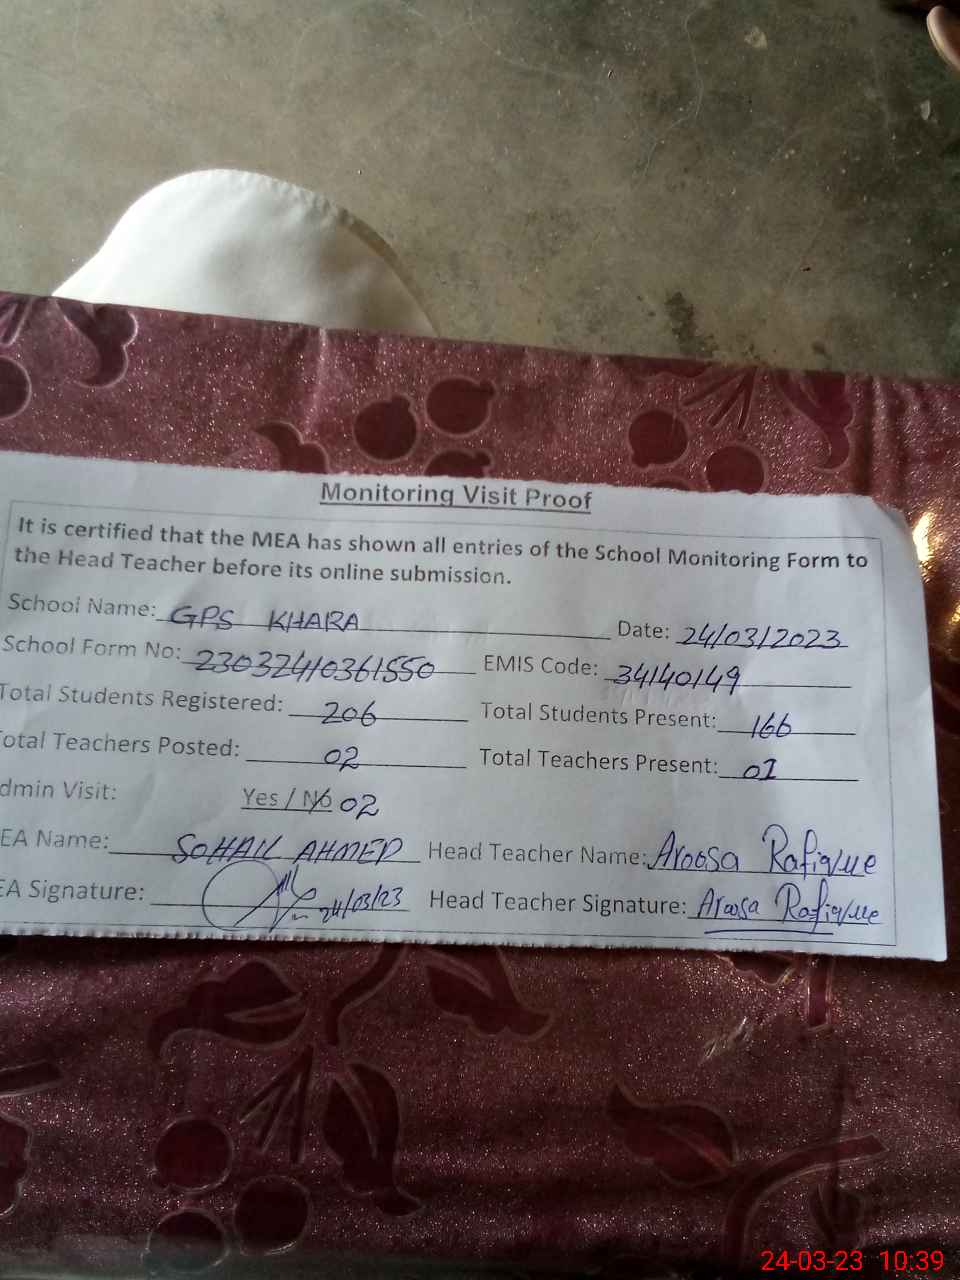 Monitoring Visit Proof
It is certified that the MEA has shown all entries of the School Monitoring Form to
the Head Teacher before its online submission.
School Name: GPS KHARA Date: 24/03/2023
School Form No: 23032410361550 EMIS Code: 34140149
Total Students Registered: 206 Total Students Present: 166
otal Teachers Posted: 02 Total Teachers Present: 01
dmin Visit: Yes / No 02
EA Name: SOHAIL AHMED Head Teacher Name: Aroosa Rafique
EA Signature: 24/03/23 Head Teacher Signature: Aroosa Rafique
24-03-23 10:39